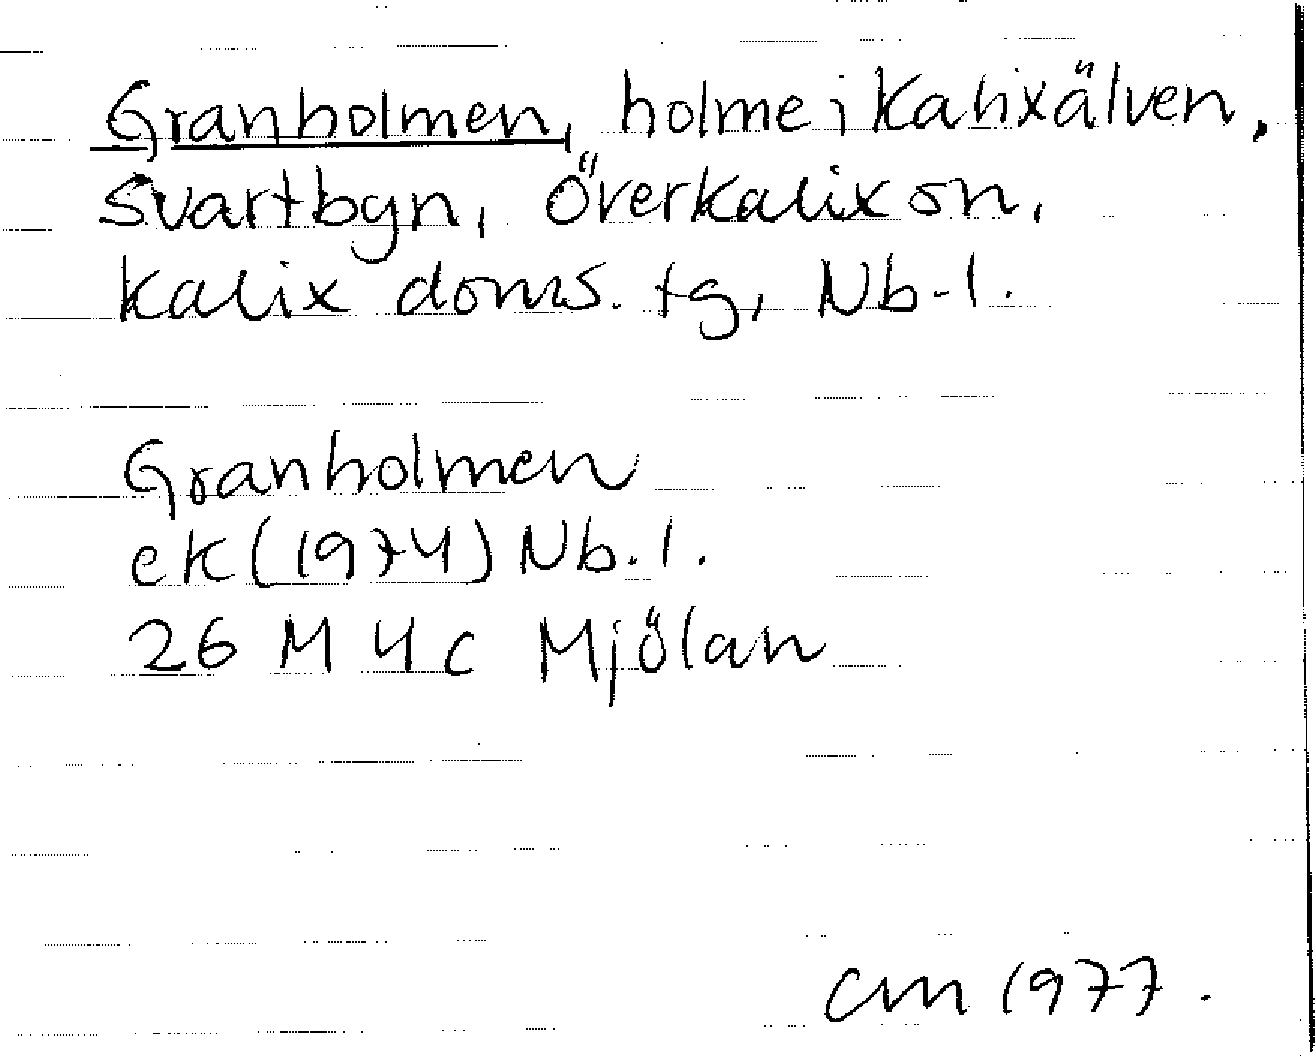 Granholmen, holme i Kalixälven,
Svartbyn, Överkalix sn,
Kalix doms. tg, Nb. l.
Granholmen
ek (1974) Nb. l.
26 M 4 c Mjölan
CM 1977.